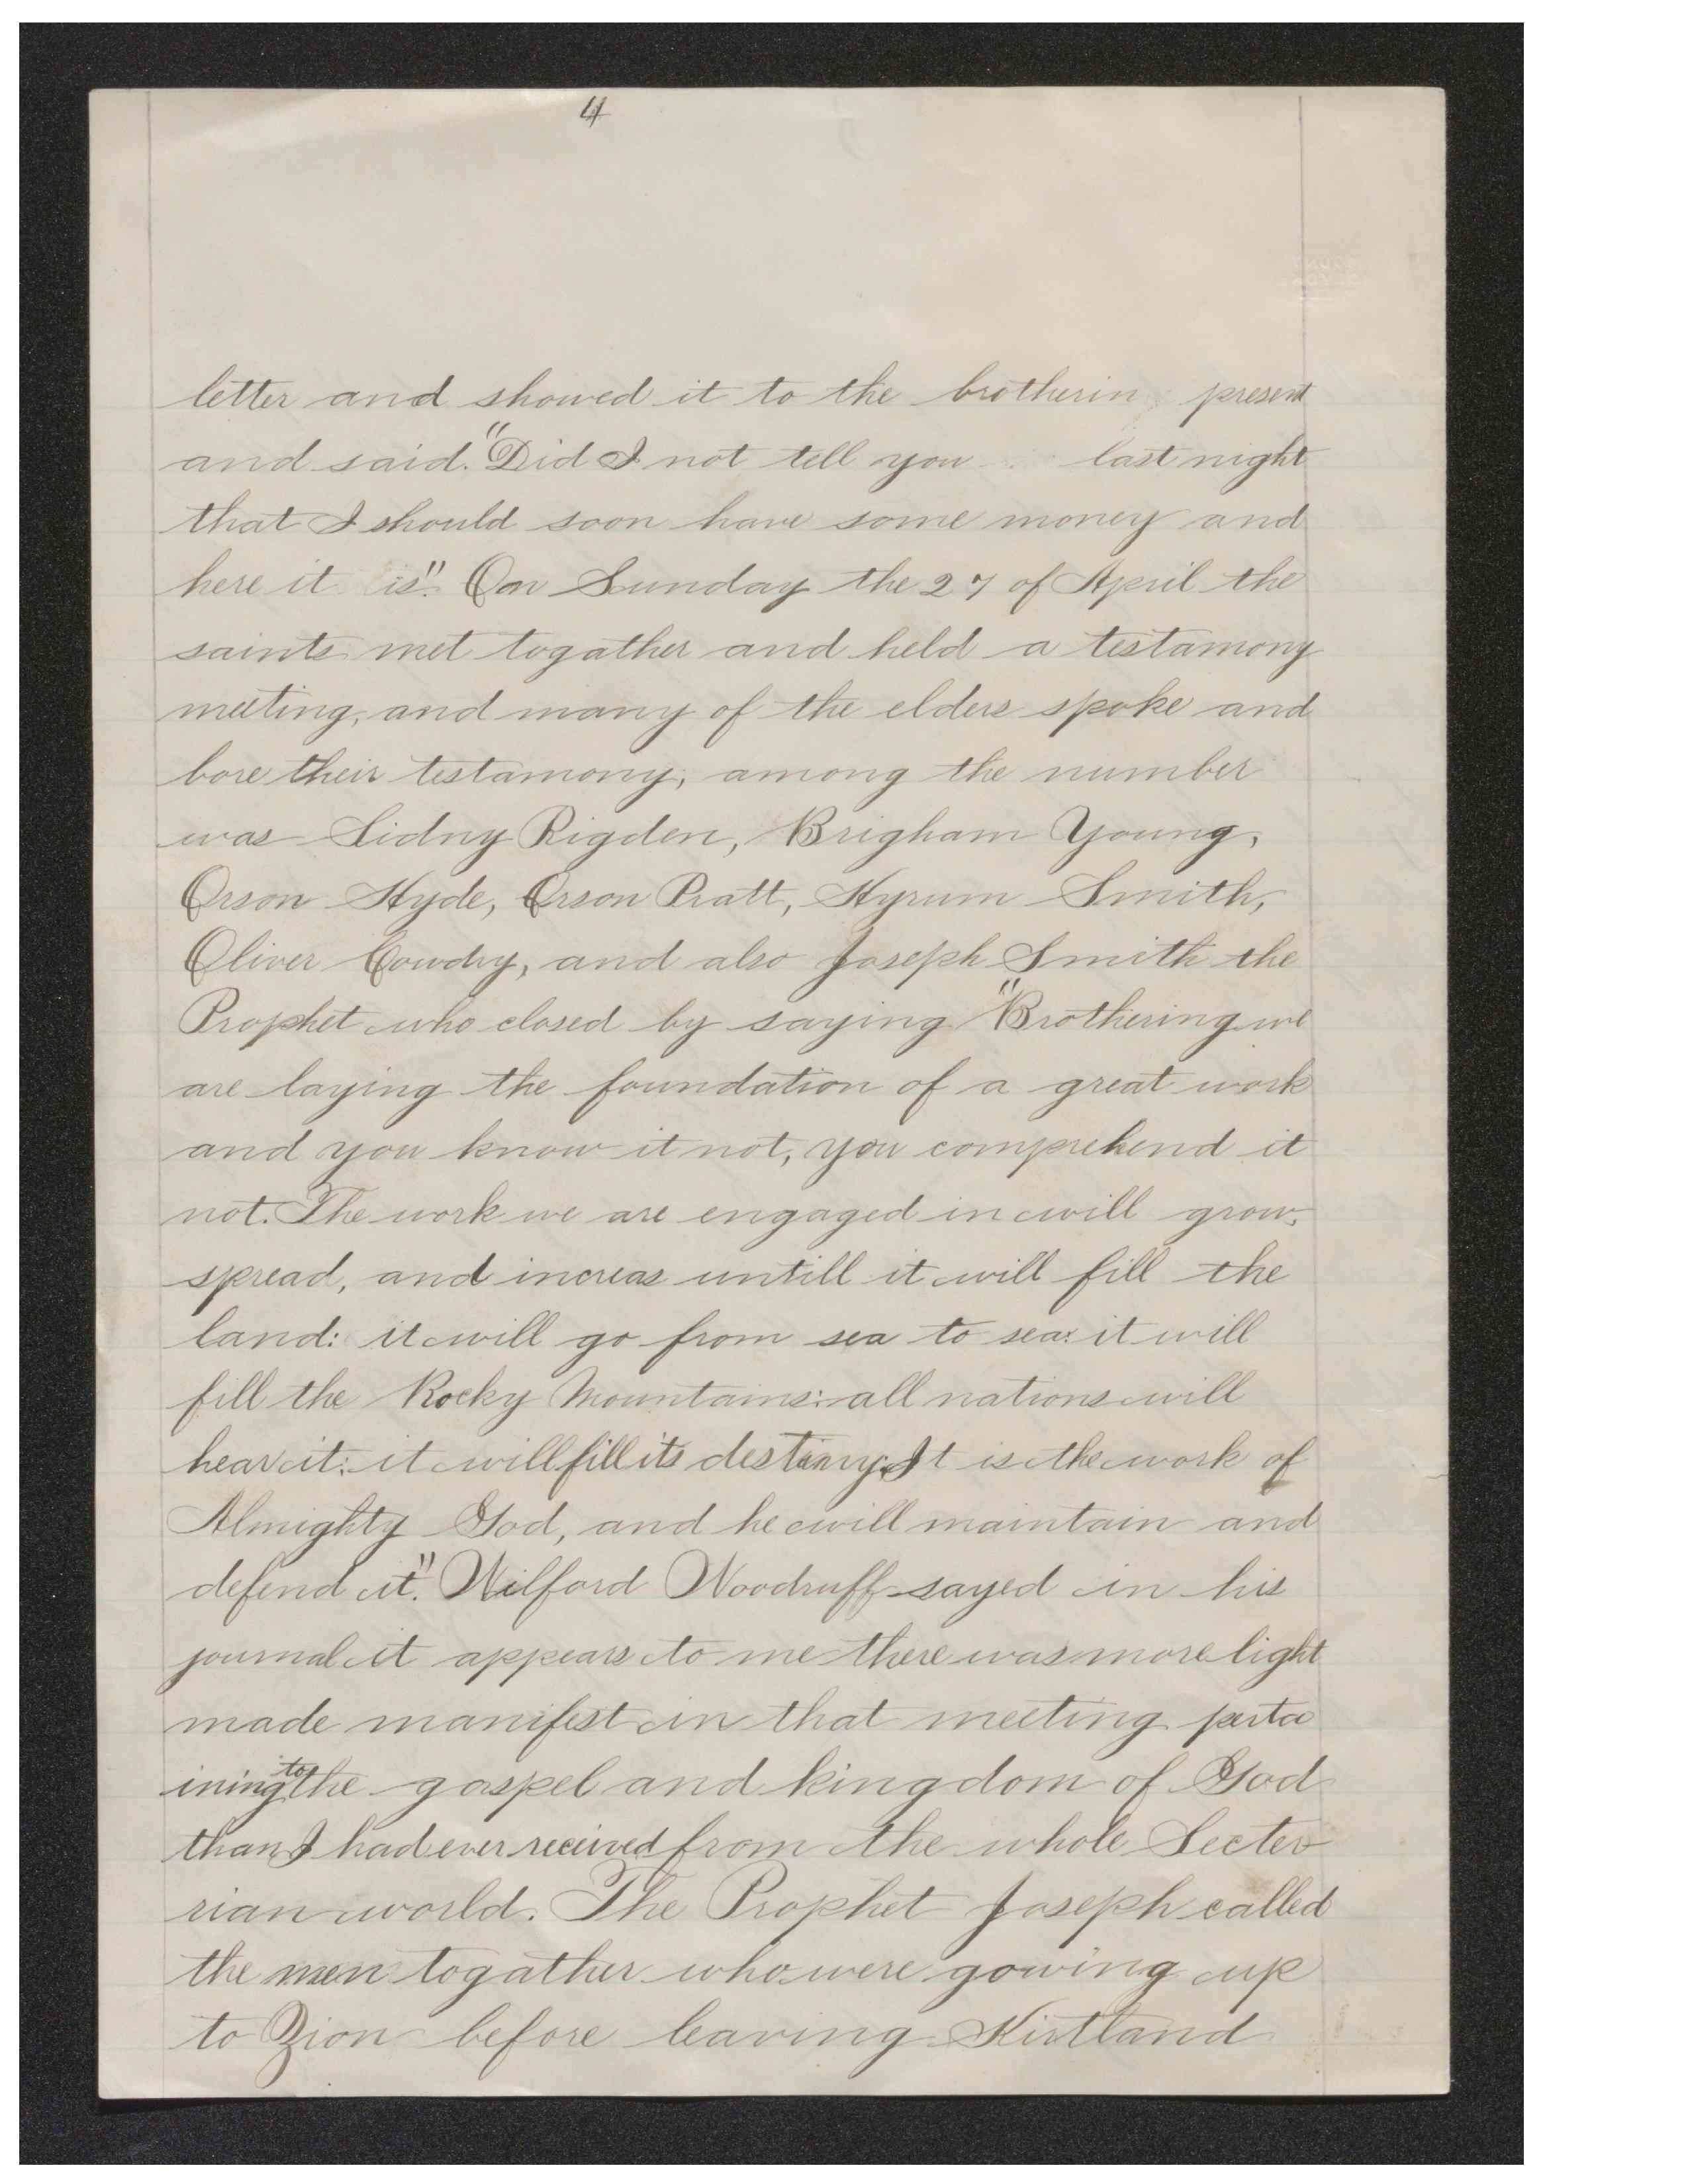 4
letter and showed it to the brotherin present
and said. "Did I not tell you last night
that I should soon have some money and
here it is". On Sunday the 27 of April the
saints met togather and held a testamony
meeting, and many of the elders spoke and
bore their testamony, among the number
was Sidny Rigden, Brigham Young,
Orson Hyde, Orson Pratt, Hyrum Smith,
Oliver Cowdry, and also Joseph Smith the
Prophet who closed by saying "Brothering we
are laying the foundation of a great work
and you know it not, you comprehend it
not. The work we are engaged in will grow,
spread, and increas untill it will fill the
land: it will go from sea to sea: it will
fill the Rocky Mountains: all nations will
hear it: it will fill its destiny. It is the work of
Almighty God, and he will maintain and
defend it". Wilford Woodruff sayed in his
journal it appears to me there was more light
made manifest in that meeting perta
ining to the gospel and kingdom of God
than I had ever received from the whole Secter
rian world. The Prophet Joseph called
the men togather who were gowing up
to Zion before leaving Kirtland